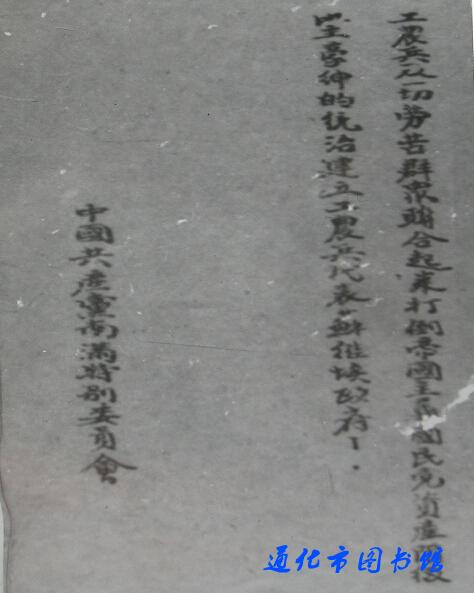 工農兵及一切勞苦群眾聯合起来打倒帝國主義國民党資產階級
地主豪紳的統治建立工農兵代表蘇維埃政府！
中國共產黨南滿特別委員會
通化市图书馆